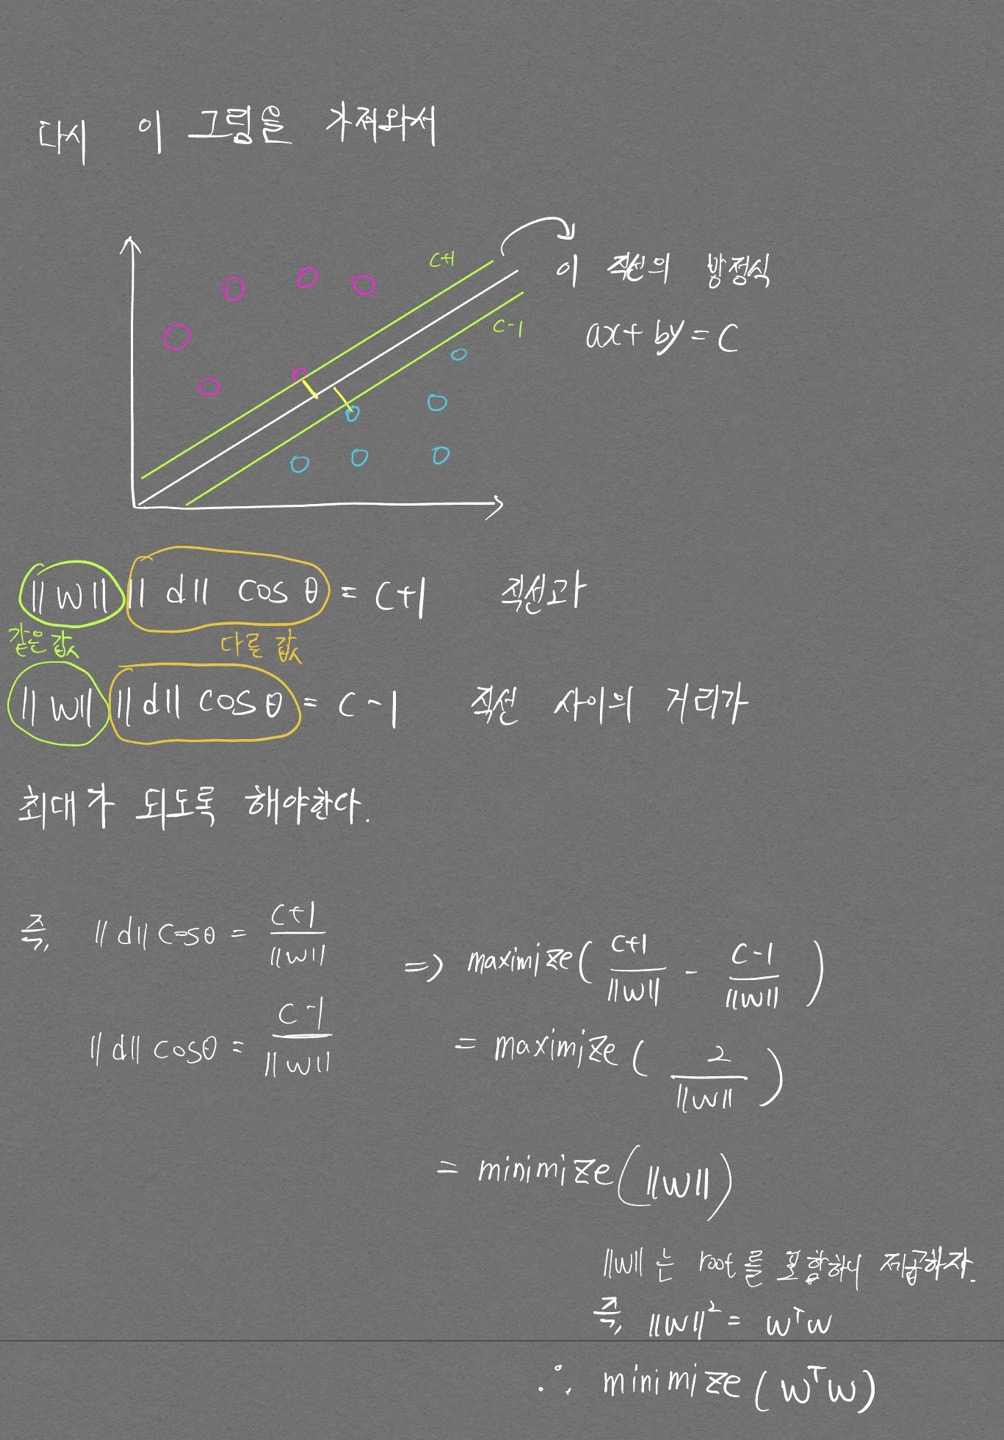 다시 이 그림을 가져와서
c+1
이 직선의 방정식
c-1
ax+by=c
||w|| ||d|| cosθ = c+1 직선과
같은 값 다른 값
||w|| ||d|| cosθ = c-1 직선 사이의 거리가
최대가 되도록 해야한다.
즉, ||d|| cosθ = c+1/||w||
||d|| cosθ = c-1/||w||
=> maximize( c+1/||w|| - c-1/||w|| )
= maximize( 2/||w|| )
= minimize(||w||)
||w||는 root를 포함하니 제곱하자.
즉, ||w||² = wᵀw
∴ minimize(wᵀw)